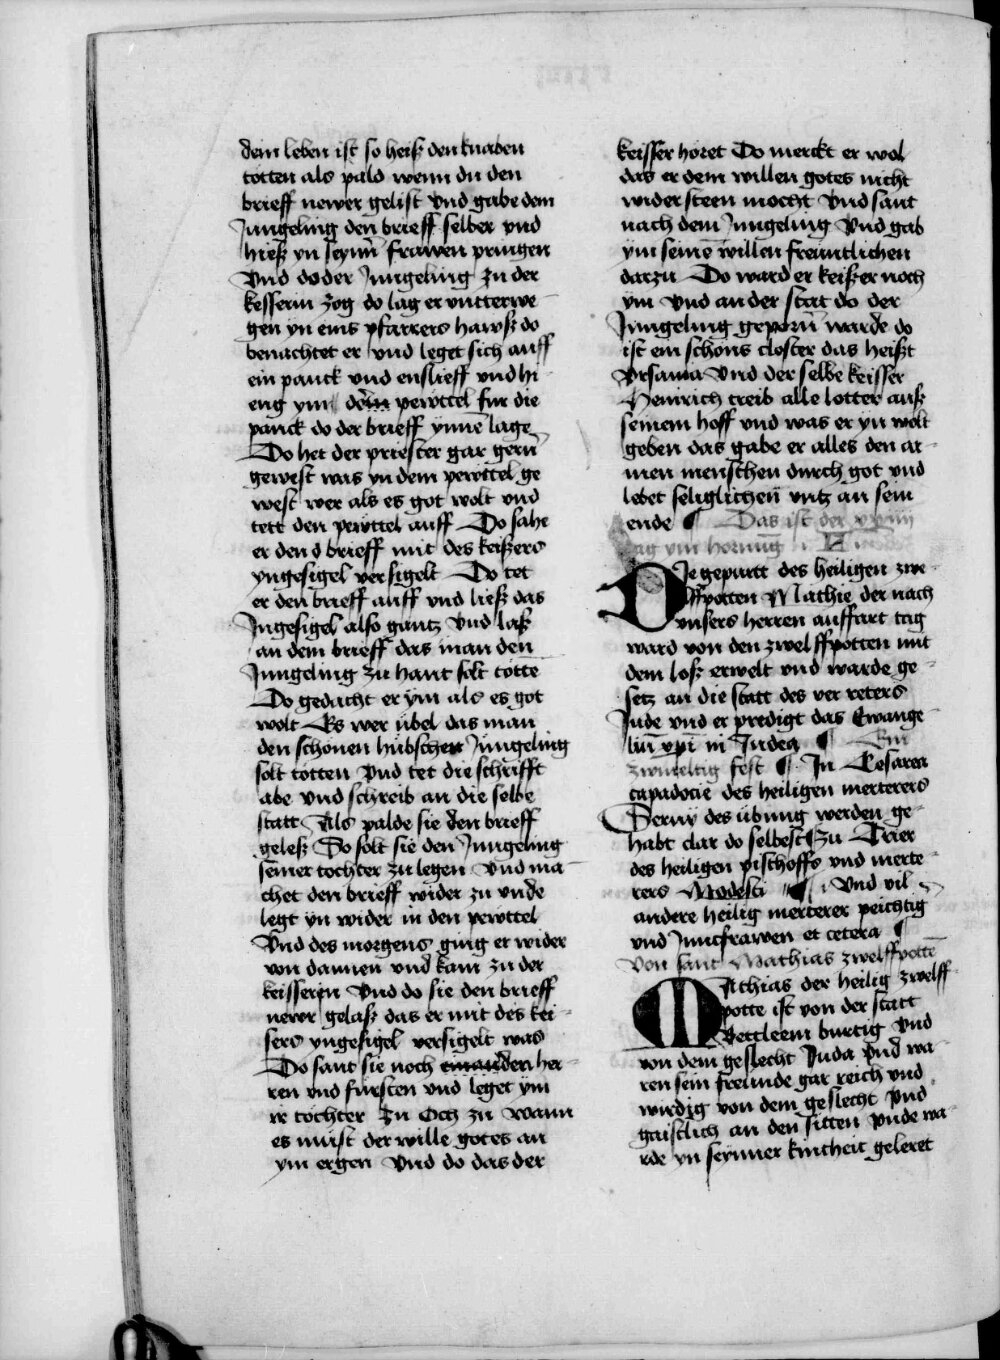 dem leben ist so heiß den knaben
totten als pald wenn du den
brieff newer gelist vnd gabe dem
Jungeling den brieff selber vnd
hieß yn seyner̄ frawen pringen
Vnd do der Jungeling zu der
kesserin zog do lag er vntterwe
gen yn eins pfarrers hawß do
benachtet er vnd leget sich auff
ein panck vnd enslieff vnd hi
eng ym dem pewttel fur die
panck do der brieff ynnē lage
Do het der priester gar gern̄
gewest was yn dem pewttel ge
west wer als es got wolt vnd
tett den pewttel auff Do sahe
er den brieff mit des keißers
yngesigel versigelt Do tet
er den brieff auff vnd ließ das
Jngesigel also gantz vnd laß
an dem brieff das man den
Jungeling zu hant solt tottē
Do gedacht er ym als es got
wolt Es wer übel das man
den schonen hübschen Jungeling
solt totten vnd tet die schrifft
abe vnd schreib an die selbe
statt Als palde sie den brieff
geleß So solt sie den Jungeling
seiner tochter zu legen vnd ma
chet den brieff wider zu vnde
legt yn wider in den pewttel
Vnd des morgens ging er wider
von dannen vnd kam zu der
keisseren vnd do sie den brieff
newr gelaß das er mit des kei
sers yngesigel versigelt was
Do sant sie noch einanden her
ren vnd fursten vnd leget ym
ir tochter zu Och zu wann
es must der wille gotes an
ym ergen Vnd do das der
keisser horet Do merckt er wol
das er dem willen gotes nicht
widersteen mocht vnd sant
nach dem Jungeling Vnd gab
ym seinē willen freuntlichen
darzu Do ward er keißer noch
ym vnd an der stat do der
Jungeling geporn̄ warde do
ist ein schons closter das heißt
Vrsania vnd der selbe keisser
Heinrich treib alle lotter auß
seinem hoff vnd was er yn wolt
geben das gabe er alles den ar
men menschen durch got vnd
lebet seliglichen vntz an sein
ende ¶ Das ist der xxiiij
tag ym hornung
Die gepurtt des heiligen zwe
lffpotten Mathie der nach
vnsers herren auffart tag
ward von den zwelffpotten mit
dem loß erwelt vnd warde ge
setz an die statt des verreters
Jude vnd er predigt das Ewange
liū xpī in Judea ¶ Ein
zwueltig fest ¶ In Cesarea
capadocie des heiligen merterers
Seruy des übung werden ge
habt clar do selbest ¶ Zu Trier
des heiligen pischoffs vnd merte
rers Modesti ¶ Vnd vil
andere heilig merterer peichtig
vnd Junckfrawen et cetera ¶
Von sant Mathias zwelffpottē
MAthias der heilig zwelff
potte ist von der statt
Bettleem burtig vnd
von dem geslecht Juda vnd wa
ren sein freunde gar reich vnd
wirdig von dem geslecht vnd
gaistlich an den sitten vnde wa
rde yn seynner kintheit geleret